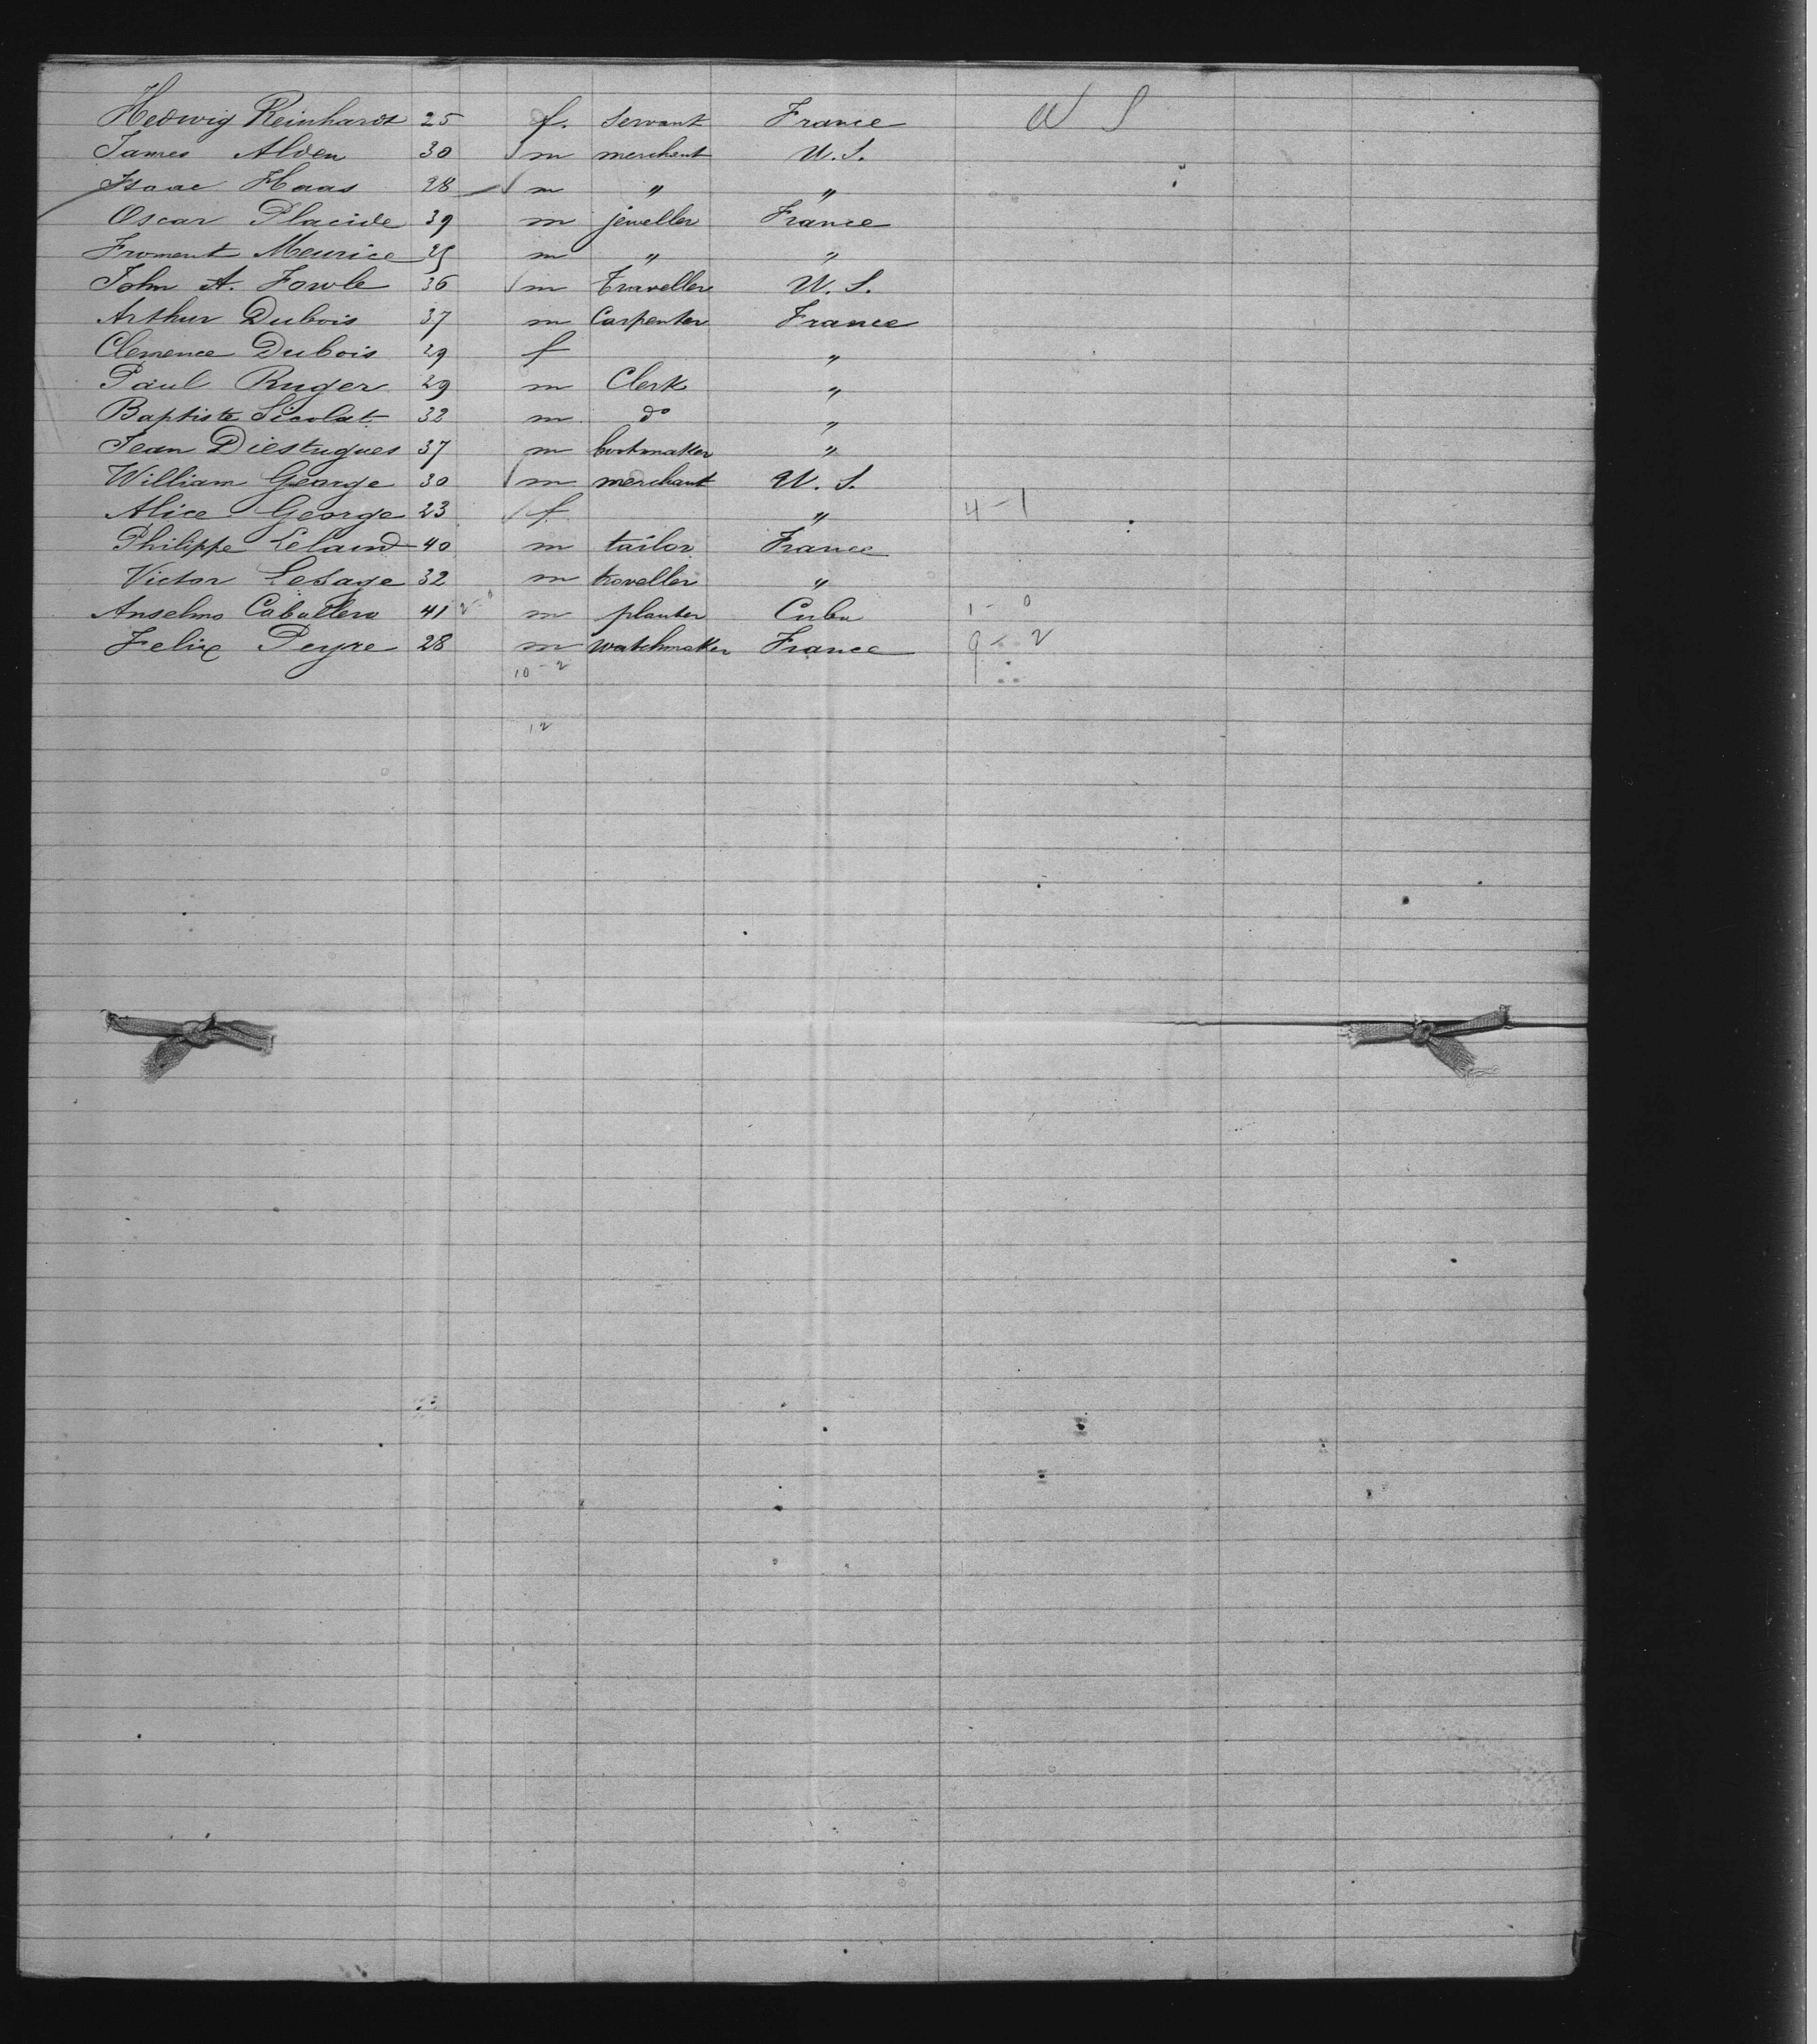 Hedwig Reinhardt 25 f. servant France U S
James Alden 30 m merchant U.S.
Isaac Haas 28 m " "
Oscar Placide 39 m jeweller France
Froment Meurice m " "
John A. Fowle 36 m Traveller U.S.
Arthur Dubois 37 m Carpenter France
Clemence Dubois 29 f "
Paul Ruger 29 m Clerk "
Baptiste 32 m do "
Jean Diestugues 37 m bootmaker "
William George 30 m merchant U.S.
Alice George 23 f " 4-1
Philippe 40 m tailor France
Victor Lesage 32 m traveller "
Anselmo Caballero 41 m planter Cuba 1-0
Felix Peyre 28 m watchmaker France 9-2
10-2
12